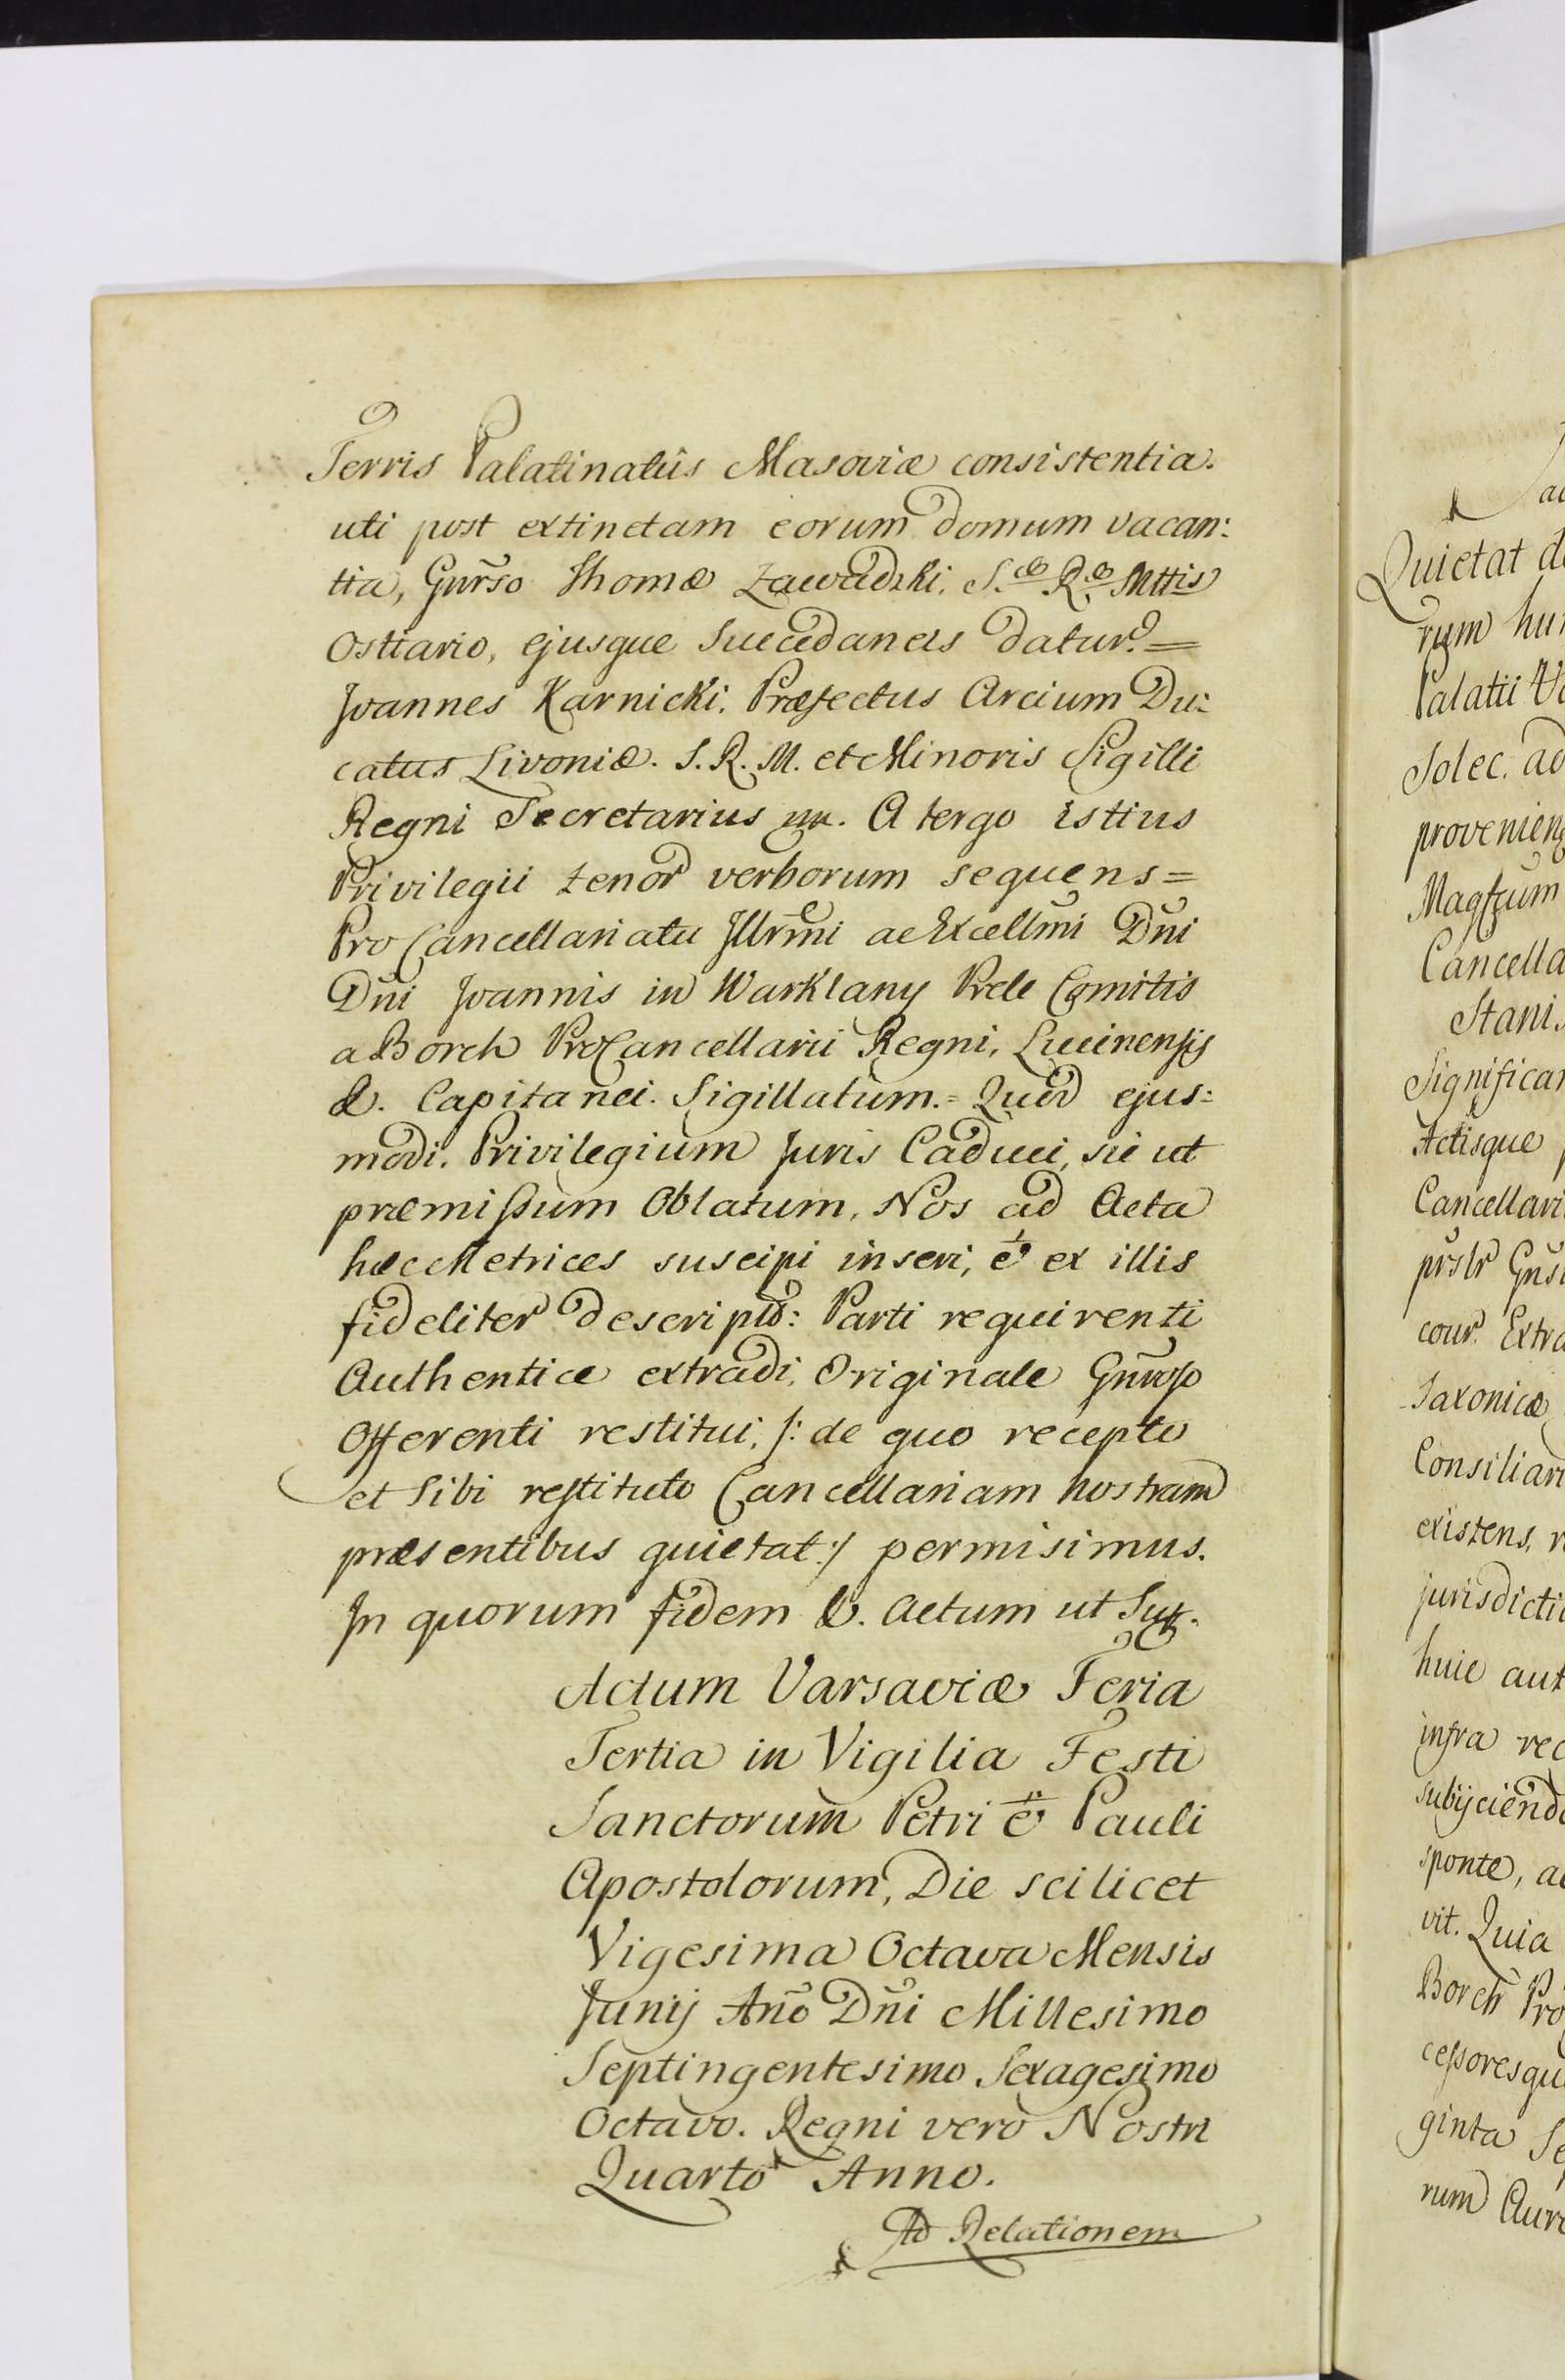 Terris Palatinatûs Masoviæ consistentia.
uti post extinctam eorum domum vacan:
tia, Gnr̃so Thomæ Zawadzki, S.æ R.æ Mttis
Ostiario, ejusque Succedaneis datur.=
Joannes Karnicki. Præfectus Arcium Du:
catus Livoniæ. S. R. M. et Minoris Sigilli
Regni Secretarius mp. A tergo istius
Privilegii tenor verborum sequens=
Pro Cancellariatu Jllrm̃i ac Excellm̃i Dñi
Dñi Joannis in Warklany Prele Comitis
a Borch ProCancellarii Regni, Lucinensis
&. Capitanei. Sigillatum.= Quod ejus:
modi. Privilegium Juris Caduci, sic ut
præmissum Oblatum, Nos ad Acta
hæc Metrices suscipi inseri, & ex illis
fideliter descriptũ: Parti requirenti
Authentice extradi, Originale Gnr̃oso
Offerenti restitui, /: de quo recepto
et Sibi restituto Cancellariam nostram
præsentibus quietat :/ permisimus.
Jn quorum fidem &. Actum ut Sup.
Actum Varsaviæ Feria
Tertia in Vigilia Festi
Sanctorum Petri & Pauli
Apostolorum, Die scilicet
Vigesima Octava Mensis
Junij Año Dñi Millesimo
Septingentesimo Sexagesimo
Octavo. Regni vero Nostri
Quarto Anno.
Ad Relationem
Quietat
rum
Palatii
Solec. ad
Cancella
Stani
Significa
Actisque
Cancellari
cour. Extra
Saxonicæ
Consiliari
existens,
jurisdicti
huic aut
infra rec
subijciend
sponte, ac
vit. Quia
Borch Pro
cessoresqu
ginta Se
rum Aur